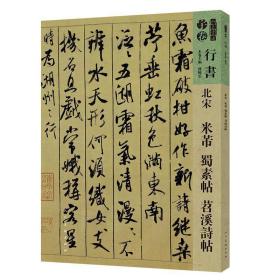 行書
北宋 米芾 蜀素帖 苕溪詩帖
魚霜破柑好作新詩繼桑
苧垂虹秋色滿東南
泛泛五湖霜氣清漫漫不
辨水天形何須織女支機
石且戲常娥稱客星
時為湖州之行